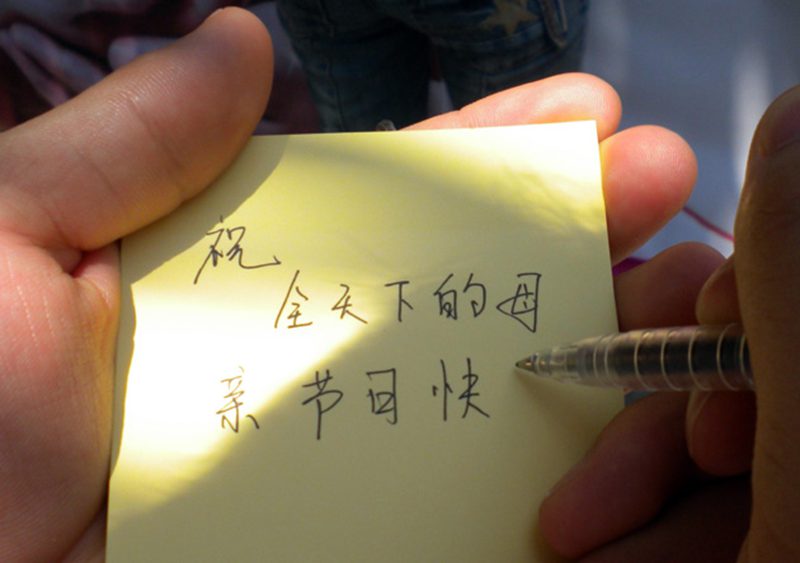 祝
全天下的母
亲节日快